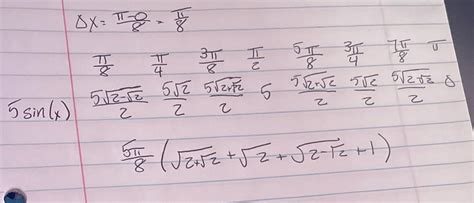 Δx = π-0/8 = π/8
π/8 π/4 3π/8 π/2 5π/8 3π/4 7π/8 π
5 sin(x) 5√2-√2/2 5√2/2 5√2+√2/2 5 5√2+√2/2 5√2/2 5√2-√2/2 0
5π/8 (√2+√2 + √2 + √2-√2 + 1)